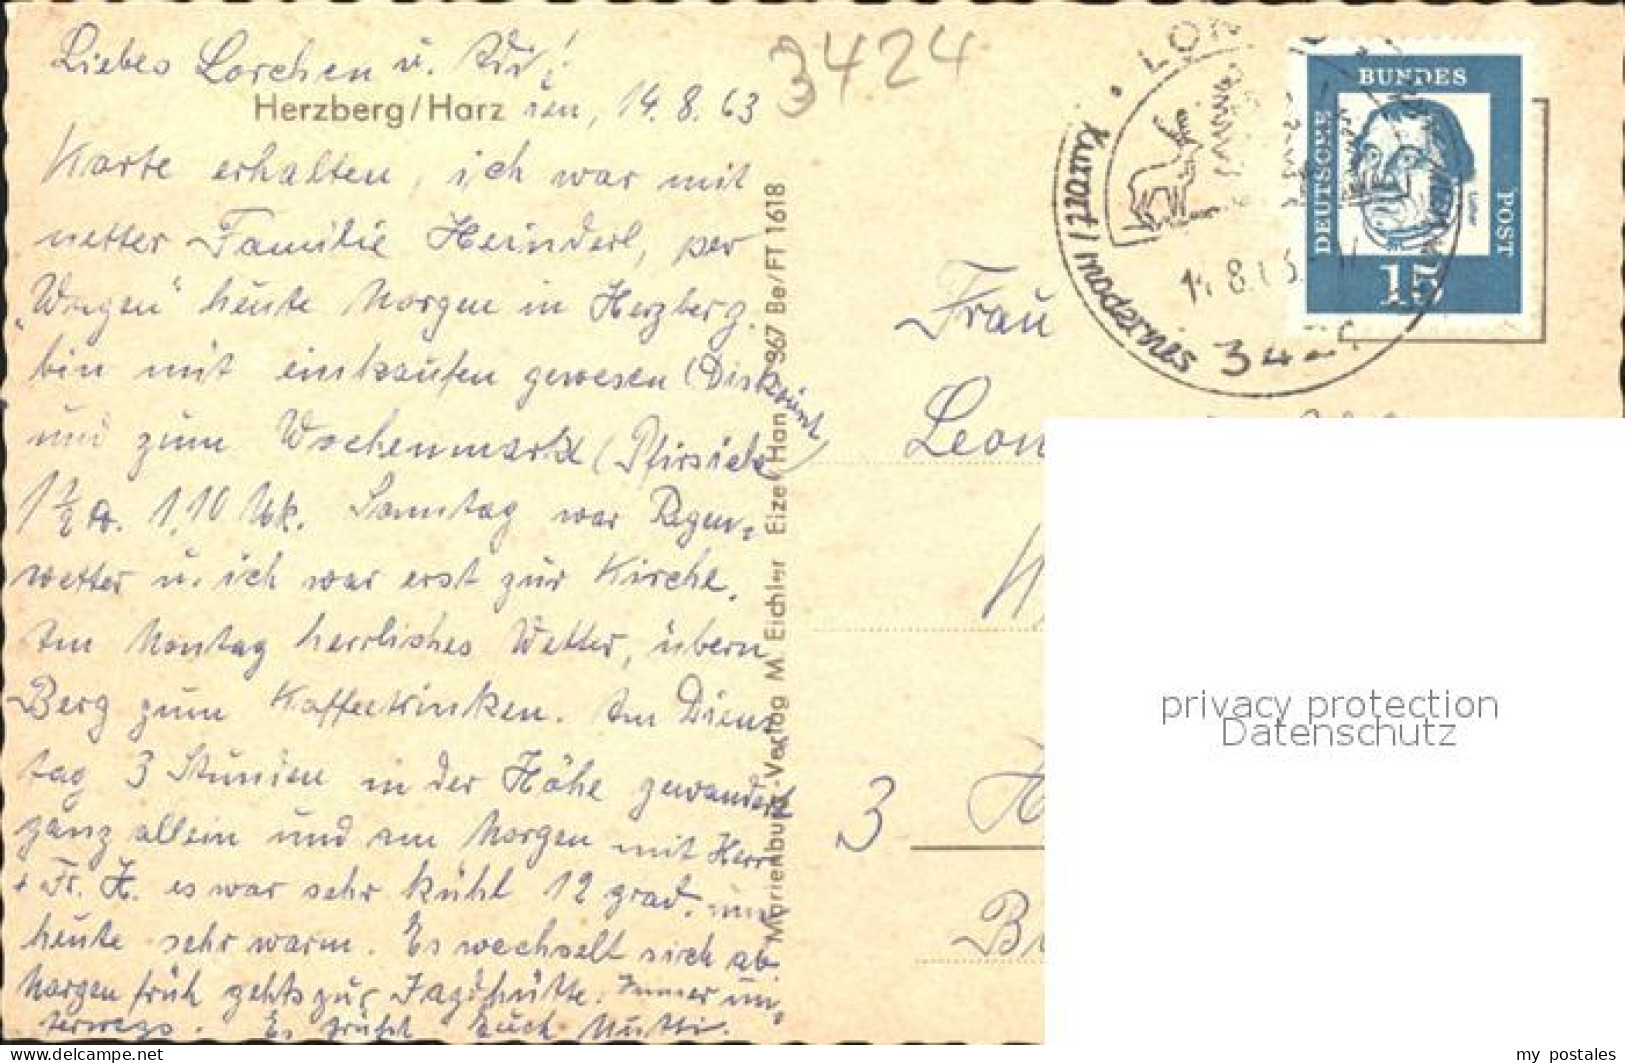 Liebes Lorchen u.
Herzberg/Harz den, 14. 8. 63
Karte erhalten, ich war mit
netter Familie Heinderl, per
„Wagen“ heute Morgen in Herzberg.
bin mit einkaufen gewesen (Diskount)
und zum Wochenmarkt (Pfirsiche
1 1/2 1,10 Mk. Sonntag war Regen-
wetter u. ich war erst zur Kirche.
Am Montag herrliches Wetter, übern
Berg zum Kaffeetrinken. Am Diens-
tag 3 Stunden in der Höhe gewandert
ganz allein und am Morgen mit Herr
+ Fr. H. es war sehr kühl 12 grad. und
heute sehr warm. Es wechselt sich ab.
Morgen früh gehts zur Jagdhütte. Immer un-
terwegs. Es grüßt Euch Mutti.
Marienburg-Verlag M. Eichler Eize/Han 967 Be/FT 1618
3424
LON
Kurort / modernes
14.8.63
3424
DEUTSCHE BUNDES POST
15
Frau
Leon
3
privacy protection
Datenschutz
www.delcampe.net
my_postales